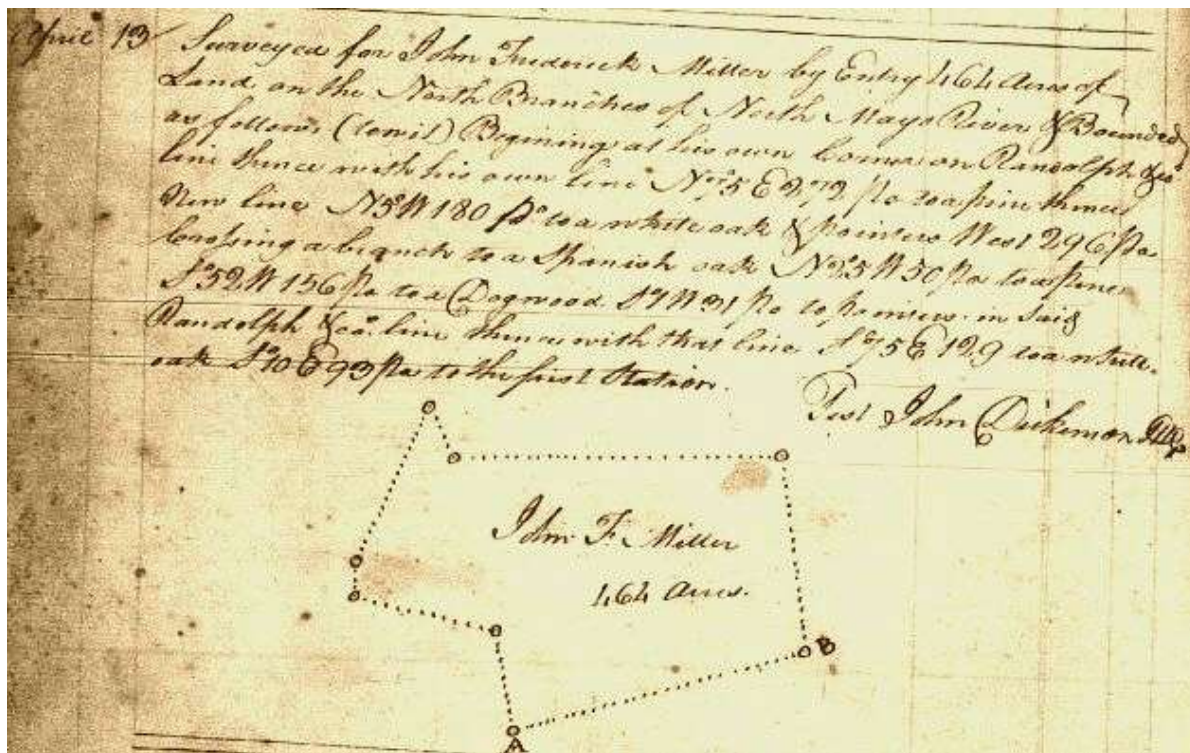 April 13 Surveyed for John Frederick Miller by Entry 464 Acres of
Land on the North Branches of North Mayo River & Bounded
as follows (towit) Begining at his own Corner on Randolph &co
line thence with his own line N75E 272 po to a pine thence
New line N5W 180 po to a white oak & pointers West 296 po
Crossing a branch to a Spanish oak N25W 50 po to a pine
S52W 156 po to a Dogwood S7W 31 po to pointers in said
Randolph &co. line thence with that line S75E 129 to a white
oak S10E 93 po to the first Station.
Test John Dickenson
John F. Miller
464 Acres.
B
A